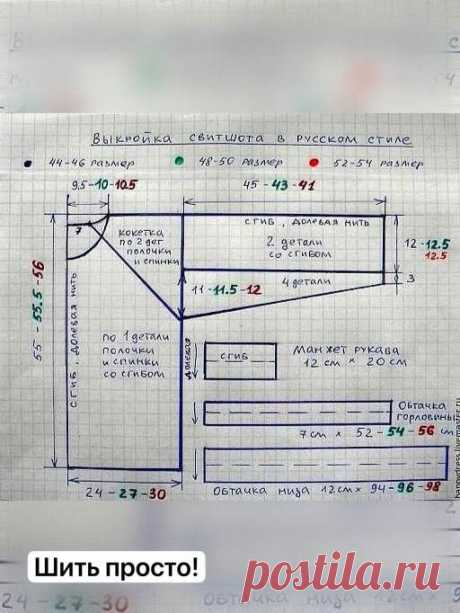 Выкройка свитшота в русском стиле
44-46 размер 48-50 размер 52-54 размер
9.5-10-10.5
45-43-41
7
кокетка
по 2 дет
полочки
и спинки
сгиб, долевая нить
2 детали
со сгибом
12-12.5
12.5
3
4 детали
11-11.5-12
55-55.5-56
сгиб, долевая нить
по 1 детали
полочки
и спинки
со сгибом
долевая
сгиб
Манжет рукава
12 см × 20 см
Обтачка
горловины
7 см × 52-54-56 см
24-27-30
Обтачка низа 12 см × 94-96-98
happydress.livemaster.ru
Шить просто!
postila.ru
24-27-30